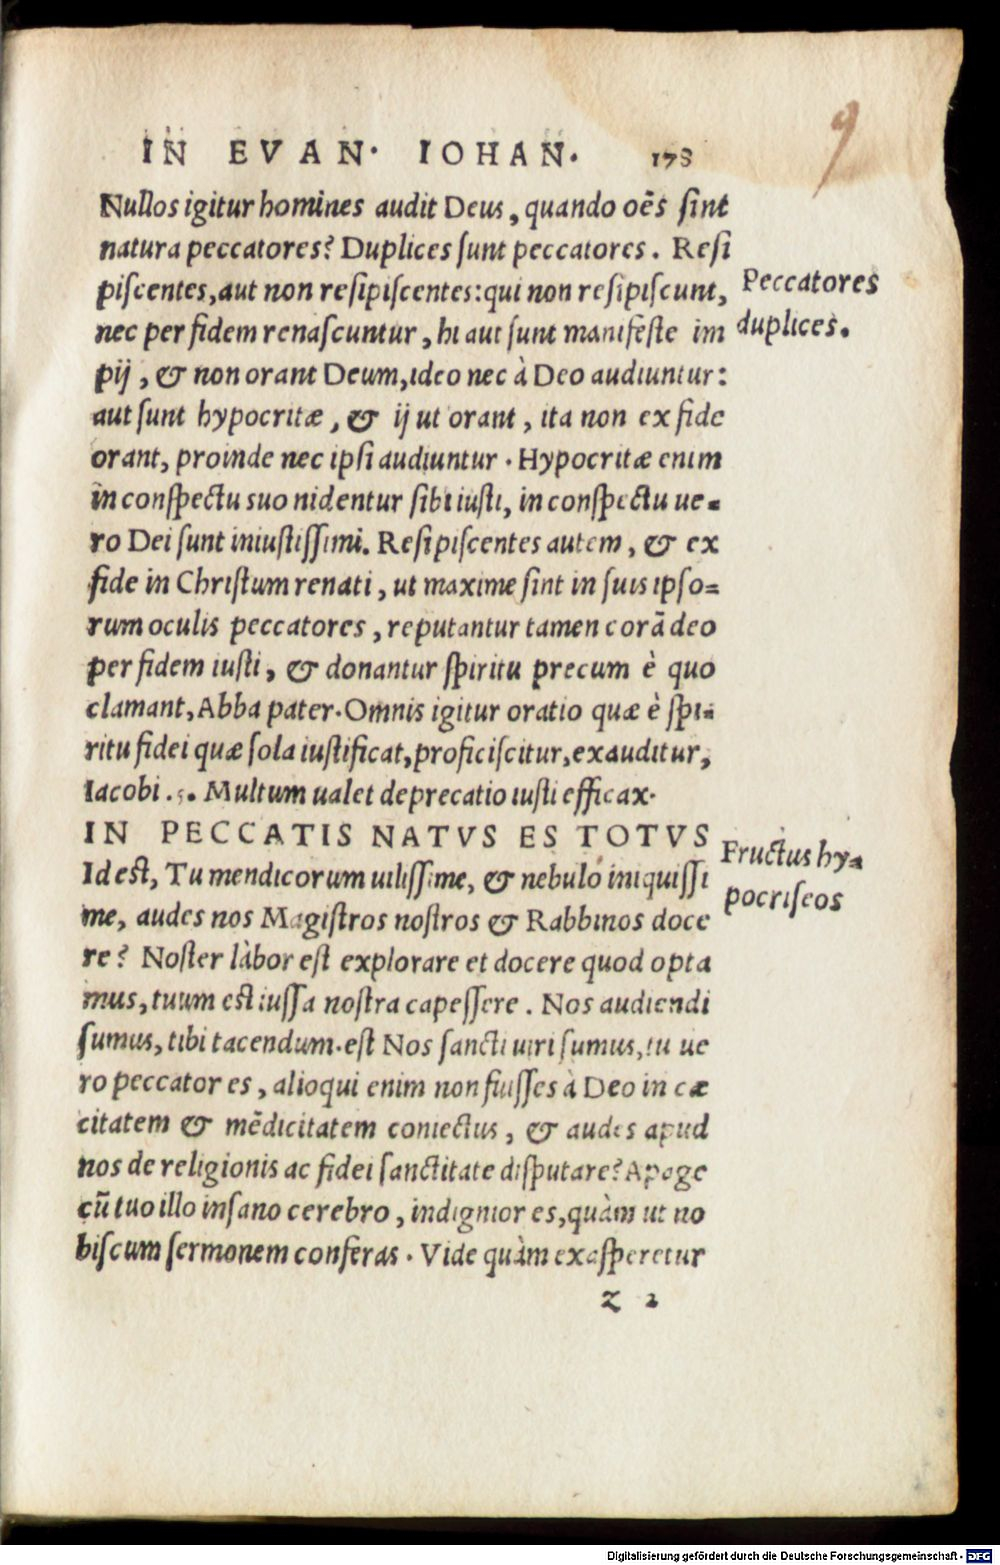 9
IN EVAN. IOHAN. 178
Nullos igitur homines audit Deus, quando oẽs sint
natura peccatores? Duplices sunt peccatores. Resi
piscentes, aut non resipiscentes: qui non resipiscunt,
Peccatores
nec per fidem renascuntur, hi aut sunt manifeste im
duplices.
pij, & non orant Deum, ideo nec à Deo audiuntur:
aut sunt hypocritæ, & ij ut orant, ita non ex fide
orant, proinde nec ipsi audiuntur. Hypocritæ enim
in conspectu suo nidentur sibi iusti, in conspectu ue=
ro Dei sunt iniustissimi. Resipiscentes autem, & ex
fide in Christum renati, ut maxime sint in suis ipso=
rum oculis peccatores, reputantur tamen corã deo
per fidem iusti, & donantur spiritu precum è quo
clamant, Abba pater. Omnis igitur oratio quæ è spi=
ritu fidei quæ sola iustificat, proficiscitur, exauditur,
Iacobi .5. Multum ualet deprecatio iusti efficax.
IN PECCATIS NATVS ES TOTVS
Fructus hy=
Id est, Tu mendicorum uilissime, & nebulo iniquissi
pocriseos
me, audes nos Magistros nostros & Rabbinos doce
re? Noster làbor est explorare et docere quod opta
mus, tuum est iussa nostra capessere. Nos audiendi
sumus, tibi tacendum. est Nos sancti uiri sumus, tu ue
ro peccator es, alioqui enim non fuisses à Deo in cæ
citatem & mẽdicitatem coniectus, & audes apud
nos de religionis ac fidei sanctitate disputare? Apage
cũ tuo illo insano cerebro, indignior es, quàm ut no
biscum sermonem conferas. Vide quàm exasperetur
z 2
Digitalisierung gefördert durch die Deutsche Forschungsgemeinschaft - DFG